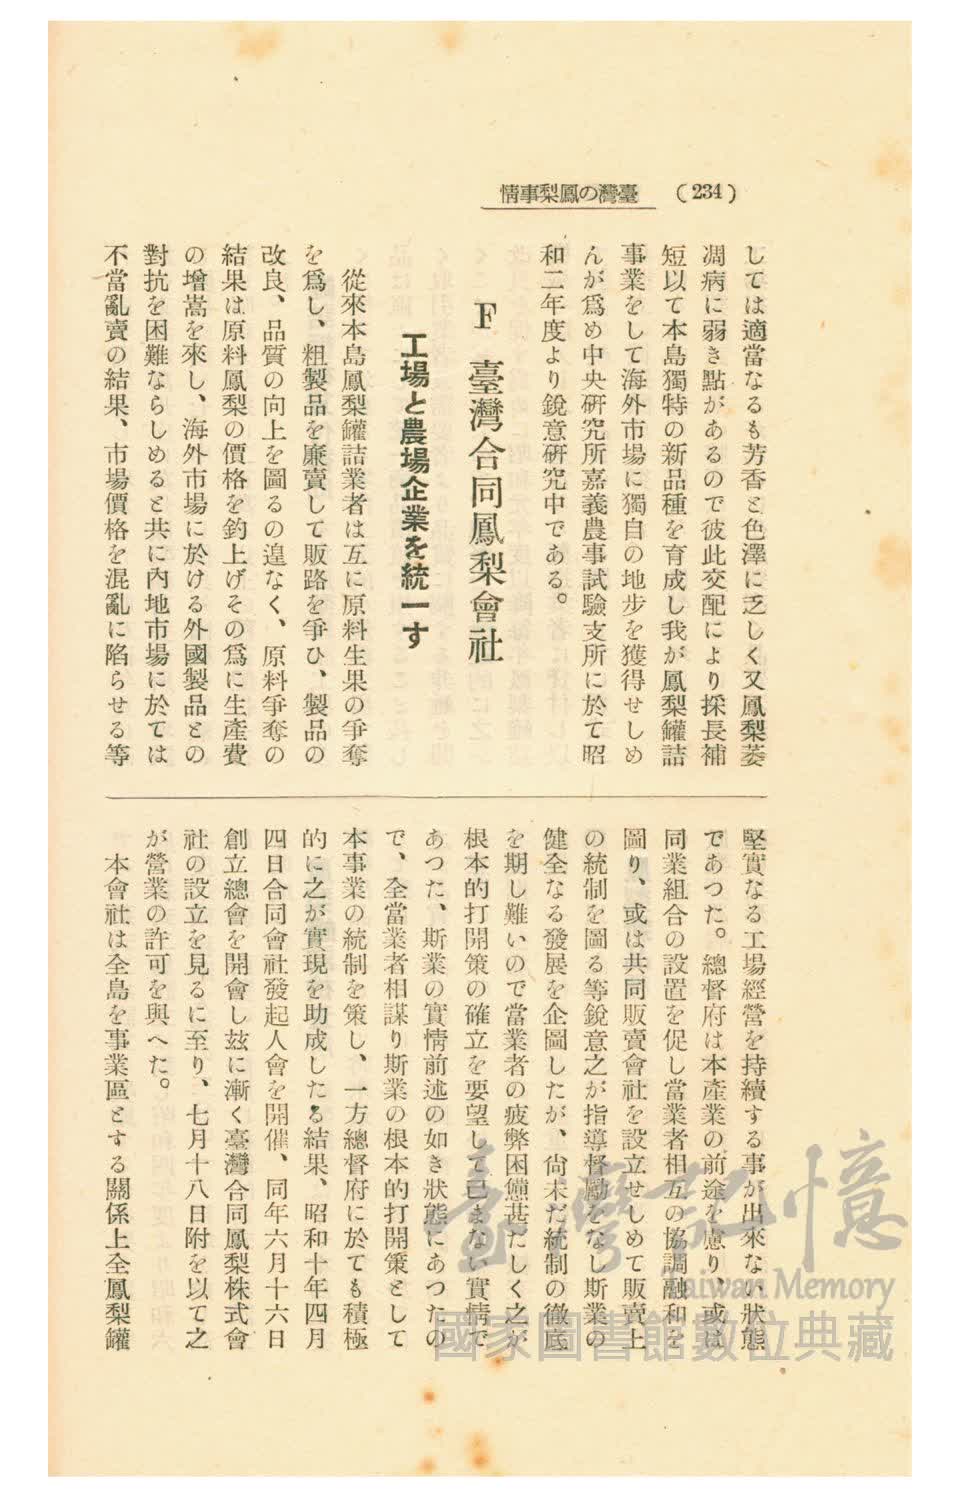 臺灣の鳳梨事情 (234)
しては適當なるも芳香と色澤に乏しく又鳳梨萎
凋病に弱き點があるので彼此交配により採長補
短以て本島獨特の新品種を育成し我が鳳梨罐詰
事業をして海外市場に獨自の地步を獲得せしめ
んが爲め中央硏究所嘉義農事試驗支所に於て昭
和二年度より銳意硏究中である。
F 臺灣合同鳳梨會社
工場と農場企業を統一す
從來本島鳳梨罐詰業者は互に原料生果の爭奪
を爲し、粗製品を廉賣して販路を爭ひ、製品の
改良、品質の向上を圖るの遑なく、原料爭奪の
結果は原料鳳梨の價格を釣上げその爲に生產費
の增嵩を來し、海外市場に於ける外國製品との
對抗を困難ならしめると共に內地市場に於ては
不當亂賣の結果、市場價格を混亂に陷らせる等
堅實なる工場經營を持續する事が出來ない狀態
であつた。總督府は本產業の前途を慮り、或は
同業組合の設置を促し當業者相互の協調融和を
圖り、或は共同販賣會社を設立せしめて販賣上
の統制を圖る等銳意之が指導督勵をなし斯業の
健全なる發展を企圖したが、尙未だ統制の徹底
を期し難いので當業者の疲弊困憊甚だしく之が
根本的打開策の確立を要望して已まない實情で
あつた、斯業の實情前述の如き狀態にあつたの
で、全當業者相謀り斯業の根本的打開策として
本事業の統制を策し、一方總督府に於ても積極
的に之が實現を助成したる結果、昭和十年四月
四日合同會社發起人會を開催、同年六月十六日
創立總會を開會し玆に漸く臺灣合同鳳梨株式會
社の設立を見るに至り、七月十八日附を以て之
が營業の許可を與へた。
本會社は全島を事業區とする關係上全鳳梨罐
臺灣記憶
Taiwan Memory
國家圖書館數位典藏